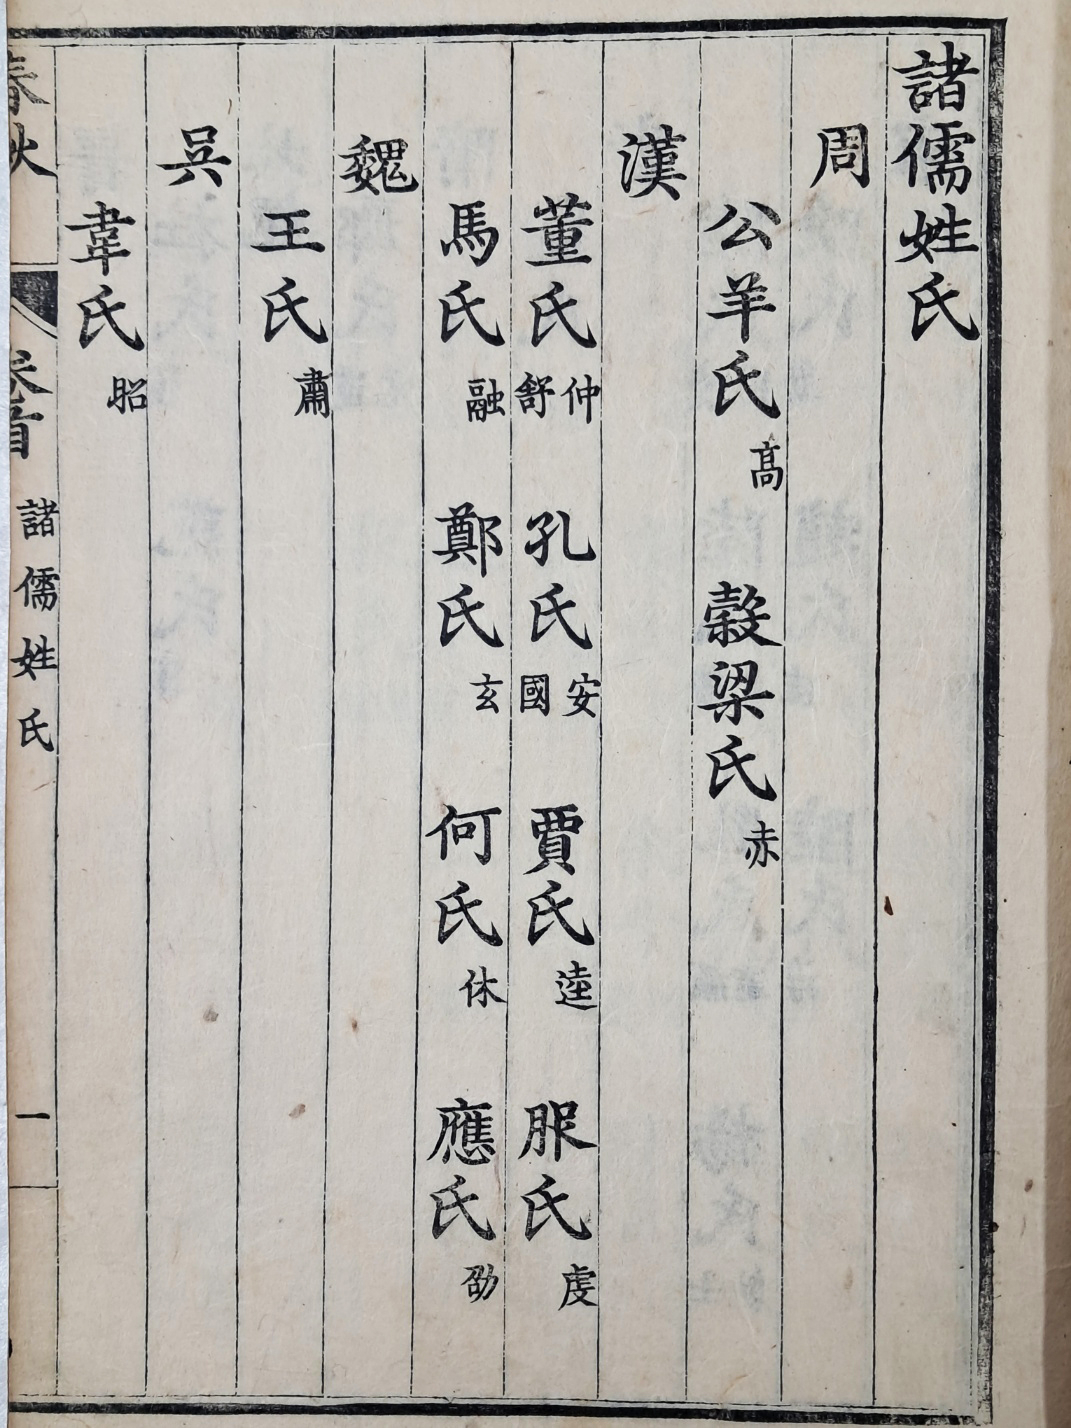 諸儒姓氏
周
公羊氏高 穀梁氏赤
漢
董氏仲舒 孔氏安國 賈氏逵 服氏虔
馬氏融 鄭氏玄 何氏休 應氏劭
魏
王氏肅
吳
韋氏昭
春秋 卷首 諸儒姓氏 一